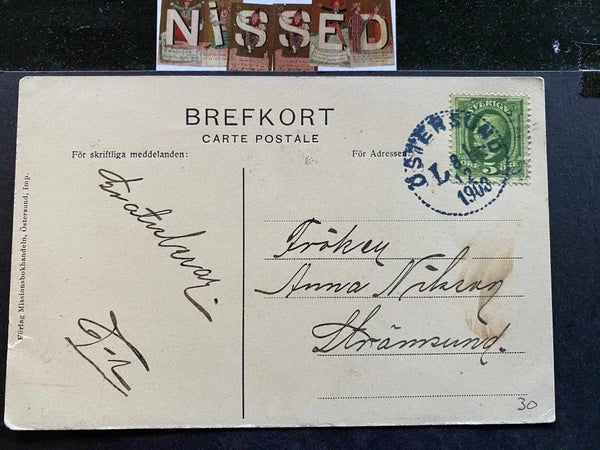 NISSED
BREFKORT
CARTE POSTALE
För skriftliga meddelanden:
För Adressen
SVERIGE
5
ÖSTERSUND
L
1903
Gratulerar
Fröken
Anna Nilsson
Strömsund.
Förlag Missionsbokhandeln, Östersund, Imp.
30